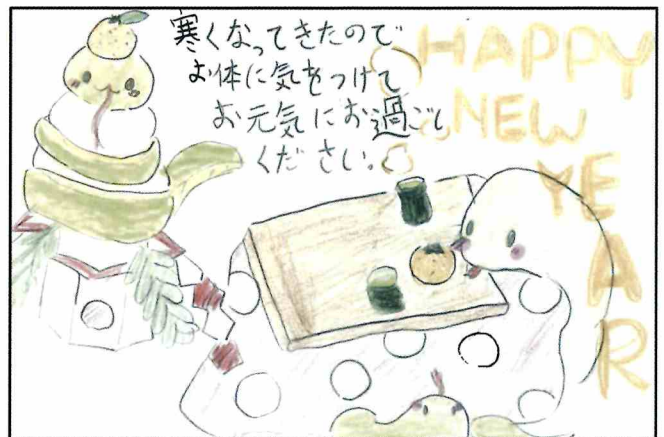 寒くなってきたので
お体に気をつけて
お元気にお過ごし
ください。
HAPPY
NEW
YEAR